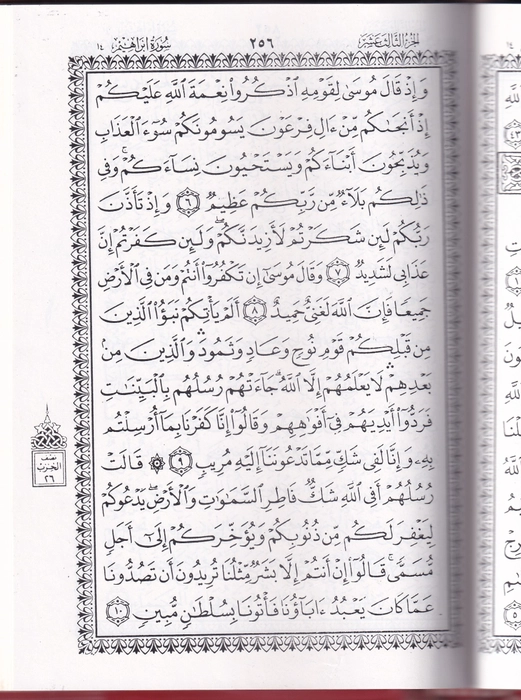 سورة إبراهيم ١٤
٢٥٦
الجزء الثالث عشر
وَإِذْ قَالَ مُوسَىٰ لِقَوْمِهِ ٱذْكُرُوا۟ نِعْمَةَ ٱللَّهِ عَلَيْكُمْ
إِذْ أَنجَىٰكُم مِّنْ ءَالِ فِرْعَوْنَ يَسُومُونَكُمْ سُوٓءَ ٱلْعَذَابِ
وَيُذَبِّحُونَ أَبْنَآءَكُمْ وَيَسْتَحْيُونَ نِسَآءَكُمْ ۚ وَفِى
ذَٰلِكُم بَلَآءٌ مِّن رَّبِّكُمْ عَظِيمٌ ٦ وَإِذْ تَأَذَّنَ
رَبُّكُمْ لَئِن شَكَرْتُمْ لَأَزِيدَنَّكُمْ ۖ وَلَئِن كَفَرْتُمْ إِنَّ
عَذَابِى لَشَدِيدٌ ٧ وَقَالَ مُوسَىٰٓ إِن تَكْفُرُوٓا۟ أَنتُمْ وَمَن فِى ٱلْأَرْضِ
جَمِيعًا فَإِنَّ ٱللَّهَ لَغَنِىٌّ حَمِيدٌ ٨ أَلَمْ يَأْتِكُمْ نَبَؤُا۟ ٱلَّذِينَ
مِن قَبْلِكُمْ قَوْمِ نُوحٍ وَعَادٍ وَثَمُودَ ۛ وَٱلَّذِينَ مِنۢ
بَعْدِهِمْ ۛ لَا يَعْلَمُهُمْ إِلَّا ٱللَّهُ ۚ جَآءَتْهُمْ رُسُلُهُم بِٱلْبَيِّنَٰتِ
فَرَدُّوٓا۟ أَيْدِيَهُمْ فِىٓ أَفْوَٰهِهِمْ وَقَالُوٓا۟ إِنَّا كَفَرْنَا بِمَآ أُرْسِلْتُم
بِهِۦ وَإِنَّا لَفِى شَكٍّ مِّمَّا تَدْعُونَنَآ إِلَيْهِ مُرِيبٍ ٩ ۞ قَالَتْ
رُسُلُهُمْ أَفِى ٱللَّهِ شَكٌّ فَاطِرِ ٱلسَّمَٰوَٰتِ وَٱلْأَرْضِ ۖ يَدْعُوكُمْ
لِيَغْفِرَ لَكُم مِّن ذُنُوبِكُمْ وَيُؤَخِّرَكُمْ إِلَىٰٓ أَجَلٍ
مُّسَمًّى ۚ قَالُوٓا۟ إِنْ أَنتُمْ إِلَّا بَشَرٌ مِّثْلُنَا تُرِيدُونَ أَن تَصُدُّونَا
عَمَّا كَانَ يَعْبُدُ ءَابَآؤُنَا فَأْتُونَا بِسُلْطَٰنٍ مُّبِينٍ ١٠
نصف
الحزب
٢٦